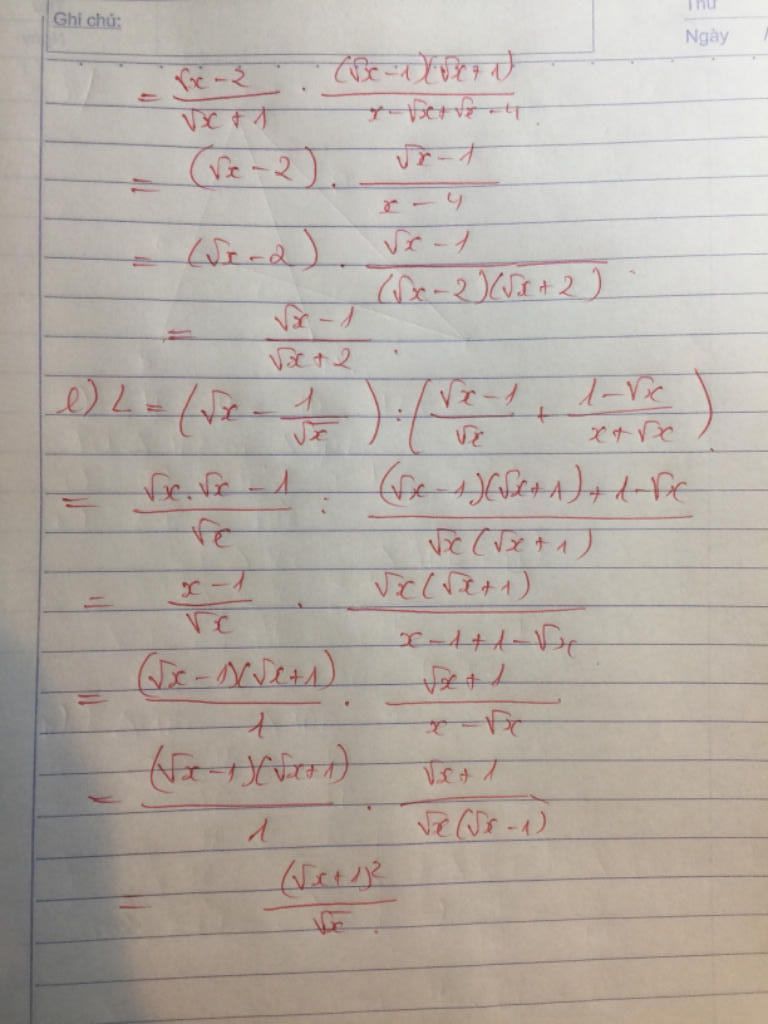 Ghi chú:
Thứ
Ngày /
= (√x - 2)/(√x + 1) · ((√x - 1)(√x + 1))/(x - √x + √x - 4)
= (√x - 2) · (√x - 1)/(x - 4)
= (√x - 2) · (√x - 1)/((√x - 2)(√x + 2)).
= (√x - 1)/(√x + 2).
e) L = (√x - 1/√x) : ((√x - 1)/√x + (1 - √x)/(x + √x)).
= (√x.√x - 1)/√x : ((√x - 1)(√x + 1) + 1 - √x)/(√x(√x + 1))
= (x - 1)/√x · (√x(√x + 1))/(x - 1 + 1 - √x)
= ((√x - 1)(√x + 1))/1 · (√x + 1)/(x - √x)
= ((√x - 1)(√x + 1))/1 · (√x + 1)/(√x(√x - 1))
= (√x + 1)²/√x.